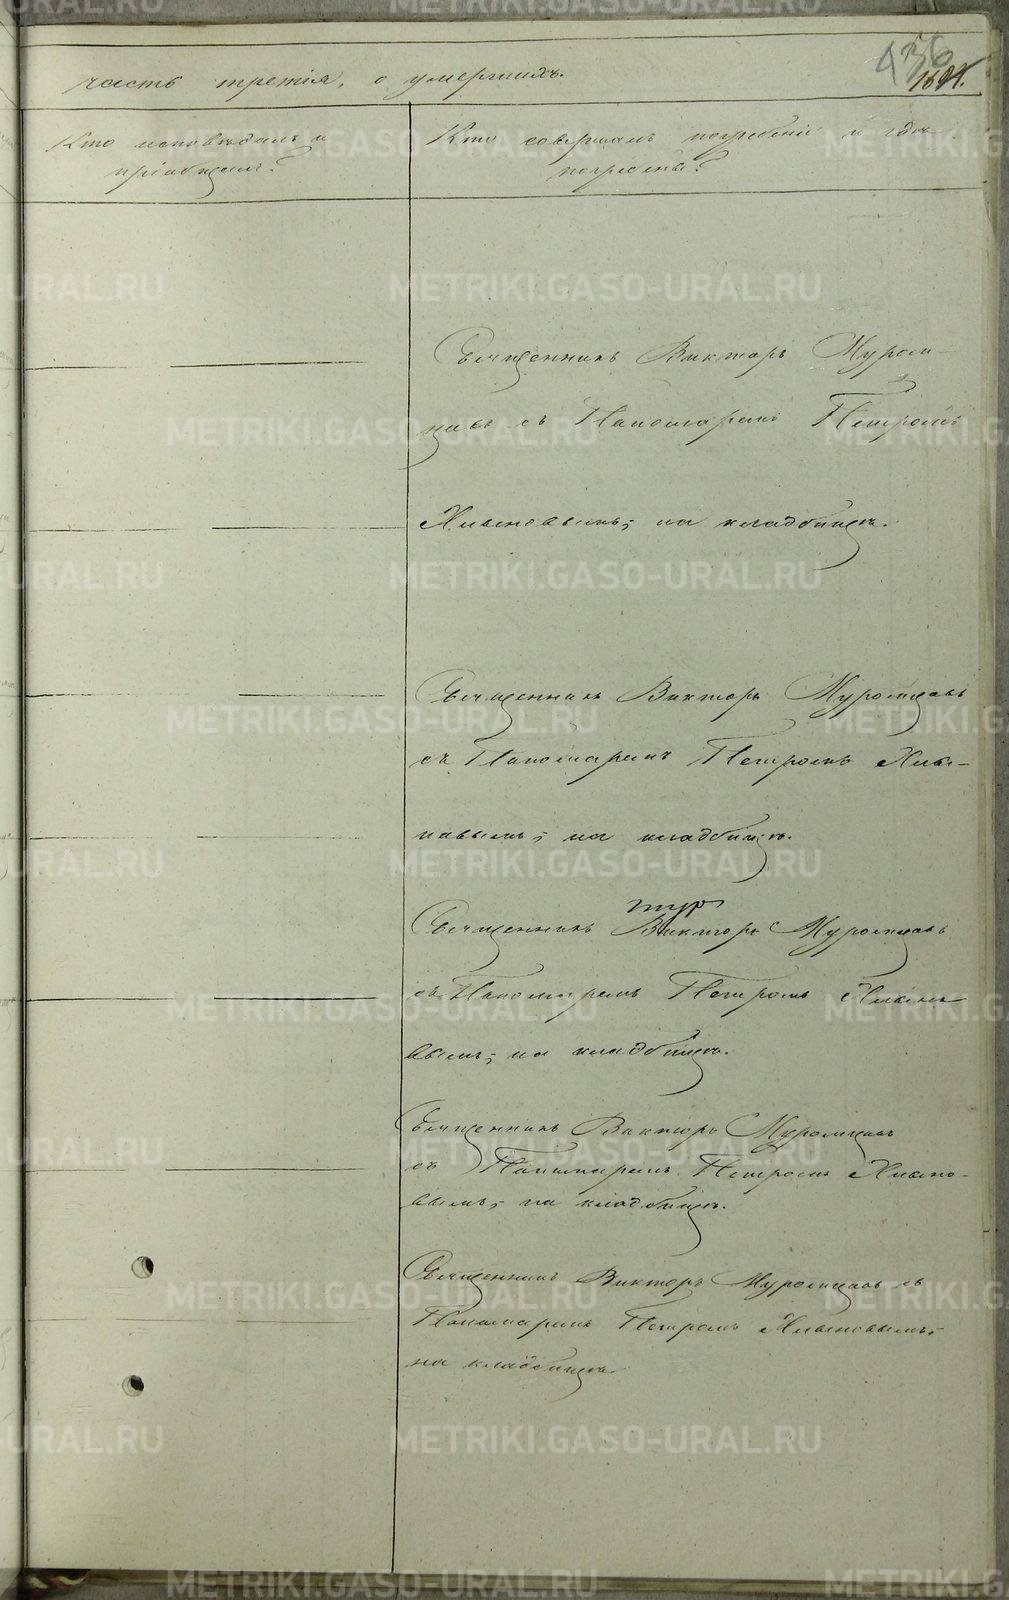 436
часть третія, о умершихъ.
Кто исповѣдалъ и
пріобщалъ?
Кто совершалъ погребеніе и гдѣ
погребены?
Священникъ Викторъ Муром-
цовъ съ Пономаремъ Петромъ
Хлыновымъ; на кладбищѣ.
Священникъ Викторъ Муромцовъ
съ Пономаремъ Петромъ Хлы-
новымъ; на кладбищѣ.
Священникъ Викторъ Муромцовъ
съ Пономаремъ Петромъ Хлыно
вымъ; на кладбищѣ.
Священникъ Викторъ Муромцовъ
съ Пономаремъ Петромъ Хлыно-
вымъ; на кладбищѣ.
Священникъ Викторъ Муромцовъ съ
Пономаремъ Петромъ Хлыновымъ;
на кладбищѣ.
METRIKI.GASO-URAL.RU